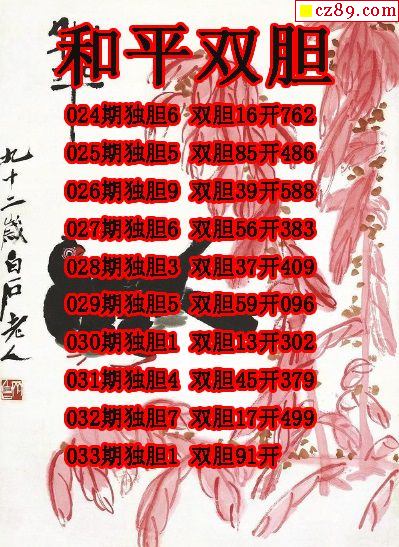 cz89.com
和平双胆
024期独胆6 双胆16开762
025期独胆5 双胆85开486
026期独胆9 双胆39开588
027期独胆6 双胆56开383
028期独胆3 双胆37开409
029期独胆5 双胆59开096
030期独胆1 双胆13开302
031期独胆4 双胆45开379
032期独胆7 双胆17开499
033期独胆1 双胆91开
九十二岁白石老人